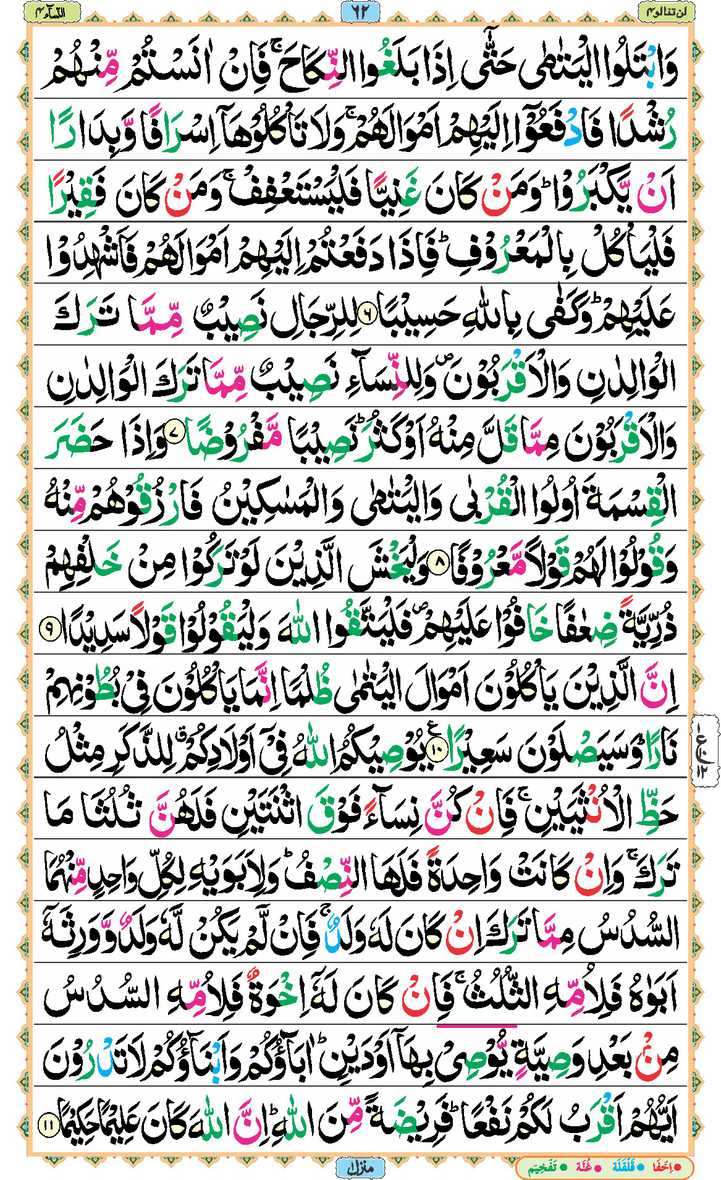 لن تنالوا ٤ ٦٢ النسآء ٤
وَابْتَلُوا الْيَتٰمٰى حَتّٰۤى اِذَا بَلَغُوا النِّكَاحَ ۚ فَاِنْ اٰنَسْتُمْ مِّنْهُمْ
رُشْدًا فَادْفَعُوْۤا اِلَيْهِمْ اَمْوَالَهُمْ ۚ وَلَا تَاْكُلُوْهَاۤ اِسْرَافًا وَّبِدَارًا
اَنْ يَّكْبَرُوْا ؕ وَمَنْ كَانَ غَنِيًّا فَلْيَسْتَعْفِفْ ۚ وَمَنْ كَانَ فَقِيْرًا
فَلْيَاْكُلْ بِالْمَعْرُوْفِ ؕ فَاِذَا دَفَعْتُمْ اِلَيْهِمْ اَمْوَالَهُمْ فَاَشْهِدُوْا
عَلَيْهِمْ ؕ وَكَفٰى بِاللّٰهِ حَسِيْبًا ٦ لِلرِّجَالِ نَصِيْبٌ مِّمَّا تَرَكَ
الْوَالِدٰنِ وَالْاَقْرَبُوْنَ ۪ وَلِلنِّسَآءِ نَصِيْبٌ مِّمَّا تَرَكَ الْوَالِدٰنِ
وَالْاَقْرَبُوْنَ مِمَّا قَلَّ مِنْهُ اَوْ كَثُرَ ؕ نَصِيْبًا مَّفْرُوْضًا ٧ وَاِذَا حَضَرَ
الْقِسْمَةَ اُولُوا الْقُرْبٰى وَالْيَتٰمٰى وَالْمَسٰكِيْنُ فَارْزُقُوْهُمْ مِّنْهُ
وَقُوْلُوْا لَهُمْ قَوْلًا مَّعْرُوْفًا ٨ وَلْيَخْشَ الَّذِيْنَ لَوْ تَرَكُوْا مِنْ خَلْفِهِمْ
ذُرِّيَّةً ضِعٰفًا خَافُوْا عَلَيْهِمْ ۪ فَلْيَتَّقُوا اللّٰهَ وَلْيَقُوْلُوْا قَوْلًا سَدِيْدًا ٩
اِنَّ الَّذِيْنَ يَاْكُلُوْنَ اَمْوَالَ الْيَتٰمٰى ظُلْمًا اِنَّمَا يَاْكُلُوْنَ فِيْ بُطُوْنِهِمْ
نَارًا ؕ وَسَيَصْلَوْنَ سَعِيْرًا ١٠ ع يُوْصِيْكُمُ اللّٰهُ فِيْۤ اَوْلَادِكُمْ ۗ لِلذَّكَرِ مِثْلُ
حَظِّ الْاُنْثَيَيْنِ ۚ فَاِنْ كُنَّ نِسَآءً فَوْقَ اثْنَتَيْنِ فَلَهُنَّ ثُلُثَا مَا
تَرَكَ ۚ وَاِنْ كَانَتْ وَاحِدَةً فَلَهَا النِّصْفُ ؕ وَلِاَبَوَيْهِ لِكُلِّ وَاحِدٍ مِّنْهُمَا
السُّدُسُ مِمَّا تَرَكَ اِنْ كَانَ لَهٗ وَلَدٌ ۚ فَاِنْ لَّمْ يَكُنْ لَّهٗ وَلَدٌ وَّوَرِثَهٗۤ
اَبَوٰهُ فَلِاُمِّهِ الثُّلُثُ ۚ فَاِنْ كَانَ لَهٗۤ اِخْوَةٌ فَلِاُمِّهِ السُّدُسُ
مِنْۢ بَعْدِ وَصِيَّةٍ يُّوْصِيْ بِهَاۤ اَوْ دَيْنٍ ؕ اٰبَآؤُكُمْ وَاَبْنَآؤُكُمْ لَا تَدْرُوْنَ
اَيُّهُمْ اَقْرَبُ لَكُمْ نَفْعًا ؕ فَرِيْضَةً مِّنَ اللّٰهِ ؕ اِنَّ اللّٰهَ كَانَ عَلِيْمًا حَكِيْمًا ١١
منزل ١ اِخْفَا قَلْقَلَة غُنَّه تَفْخِيْم